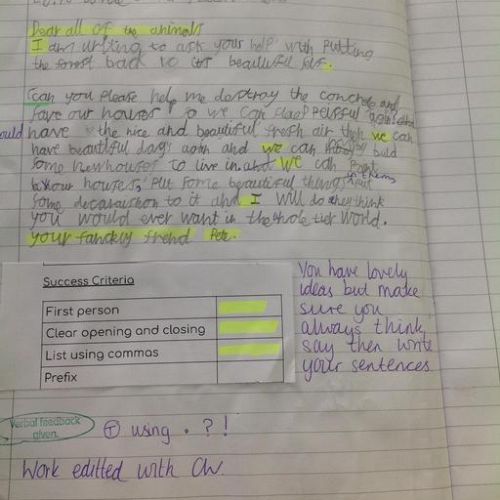 Dear all of the animals
I am writing to ask your help with putting
the forest back to its beautiful self.
can you please help me destroy the concrete and
save our houses so we can
ould have the nice and beautiful fresh air then we can
have beautiful days and we can build
some new houses to live in and we can
our houses, put some beautiful things
some to it and I will do think
you would ever want in the world.
your friend Pete.
Success Criteria
First person
Clear opening and closing
List using commas
Prefix
You have lovely
ideas but make
sure you
always think,
say then write
your sentences.
Verbal feedback
given.
T using . ? !
Work editted with CW.